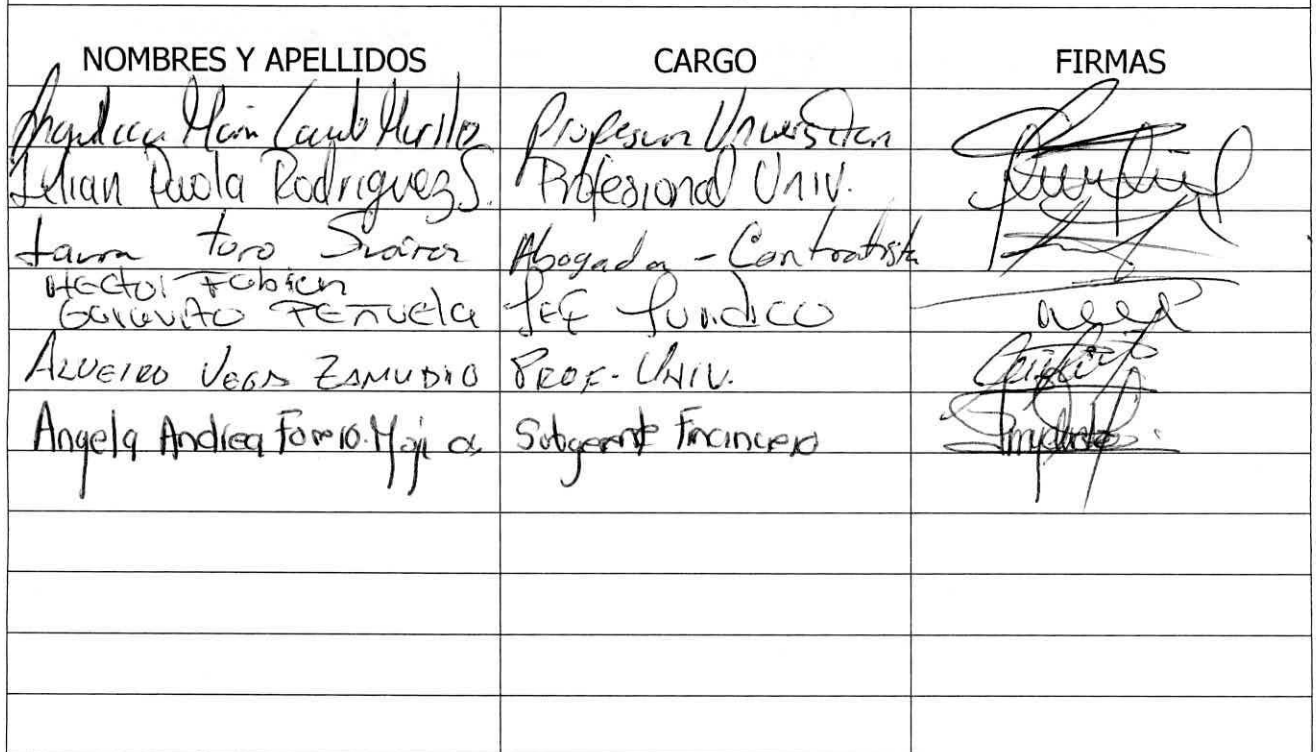 NOMBRES Y APELLIDOS CARGO FIRMAS
Murillo Universitari
Lilian Paola Rodriguez S. Profesional Univ.
Laura Toro Suárez Abogada - Contratista
Hector Fabian
Garavito Peñuela Jefe Juridico
ALVEIRO VEGA ZAMUDIO PROF. UNIV.
Angela Andrea Forero Mojica Subgerente Financiero